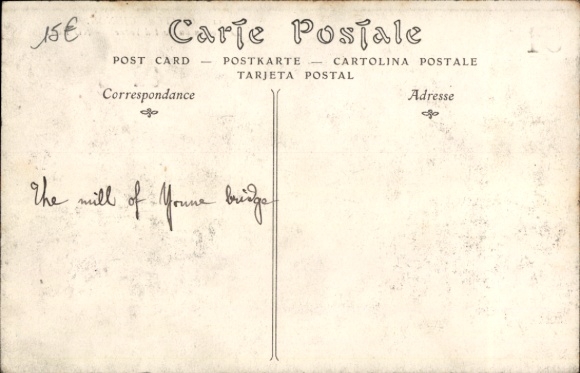 15€
Carte Postale
POST CARD — POSTKARTE — CARTOLINA POSTALE
TARJETA POSTAL
Correspondance
Adresse
The mill of Yonne bridge